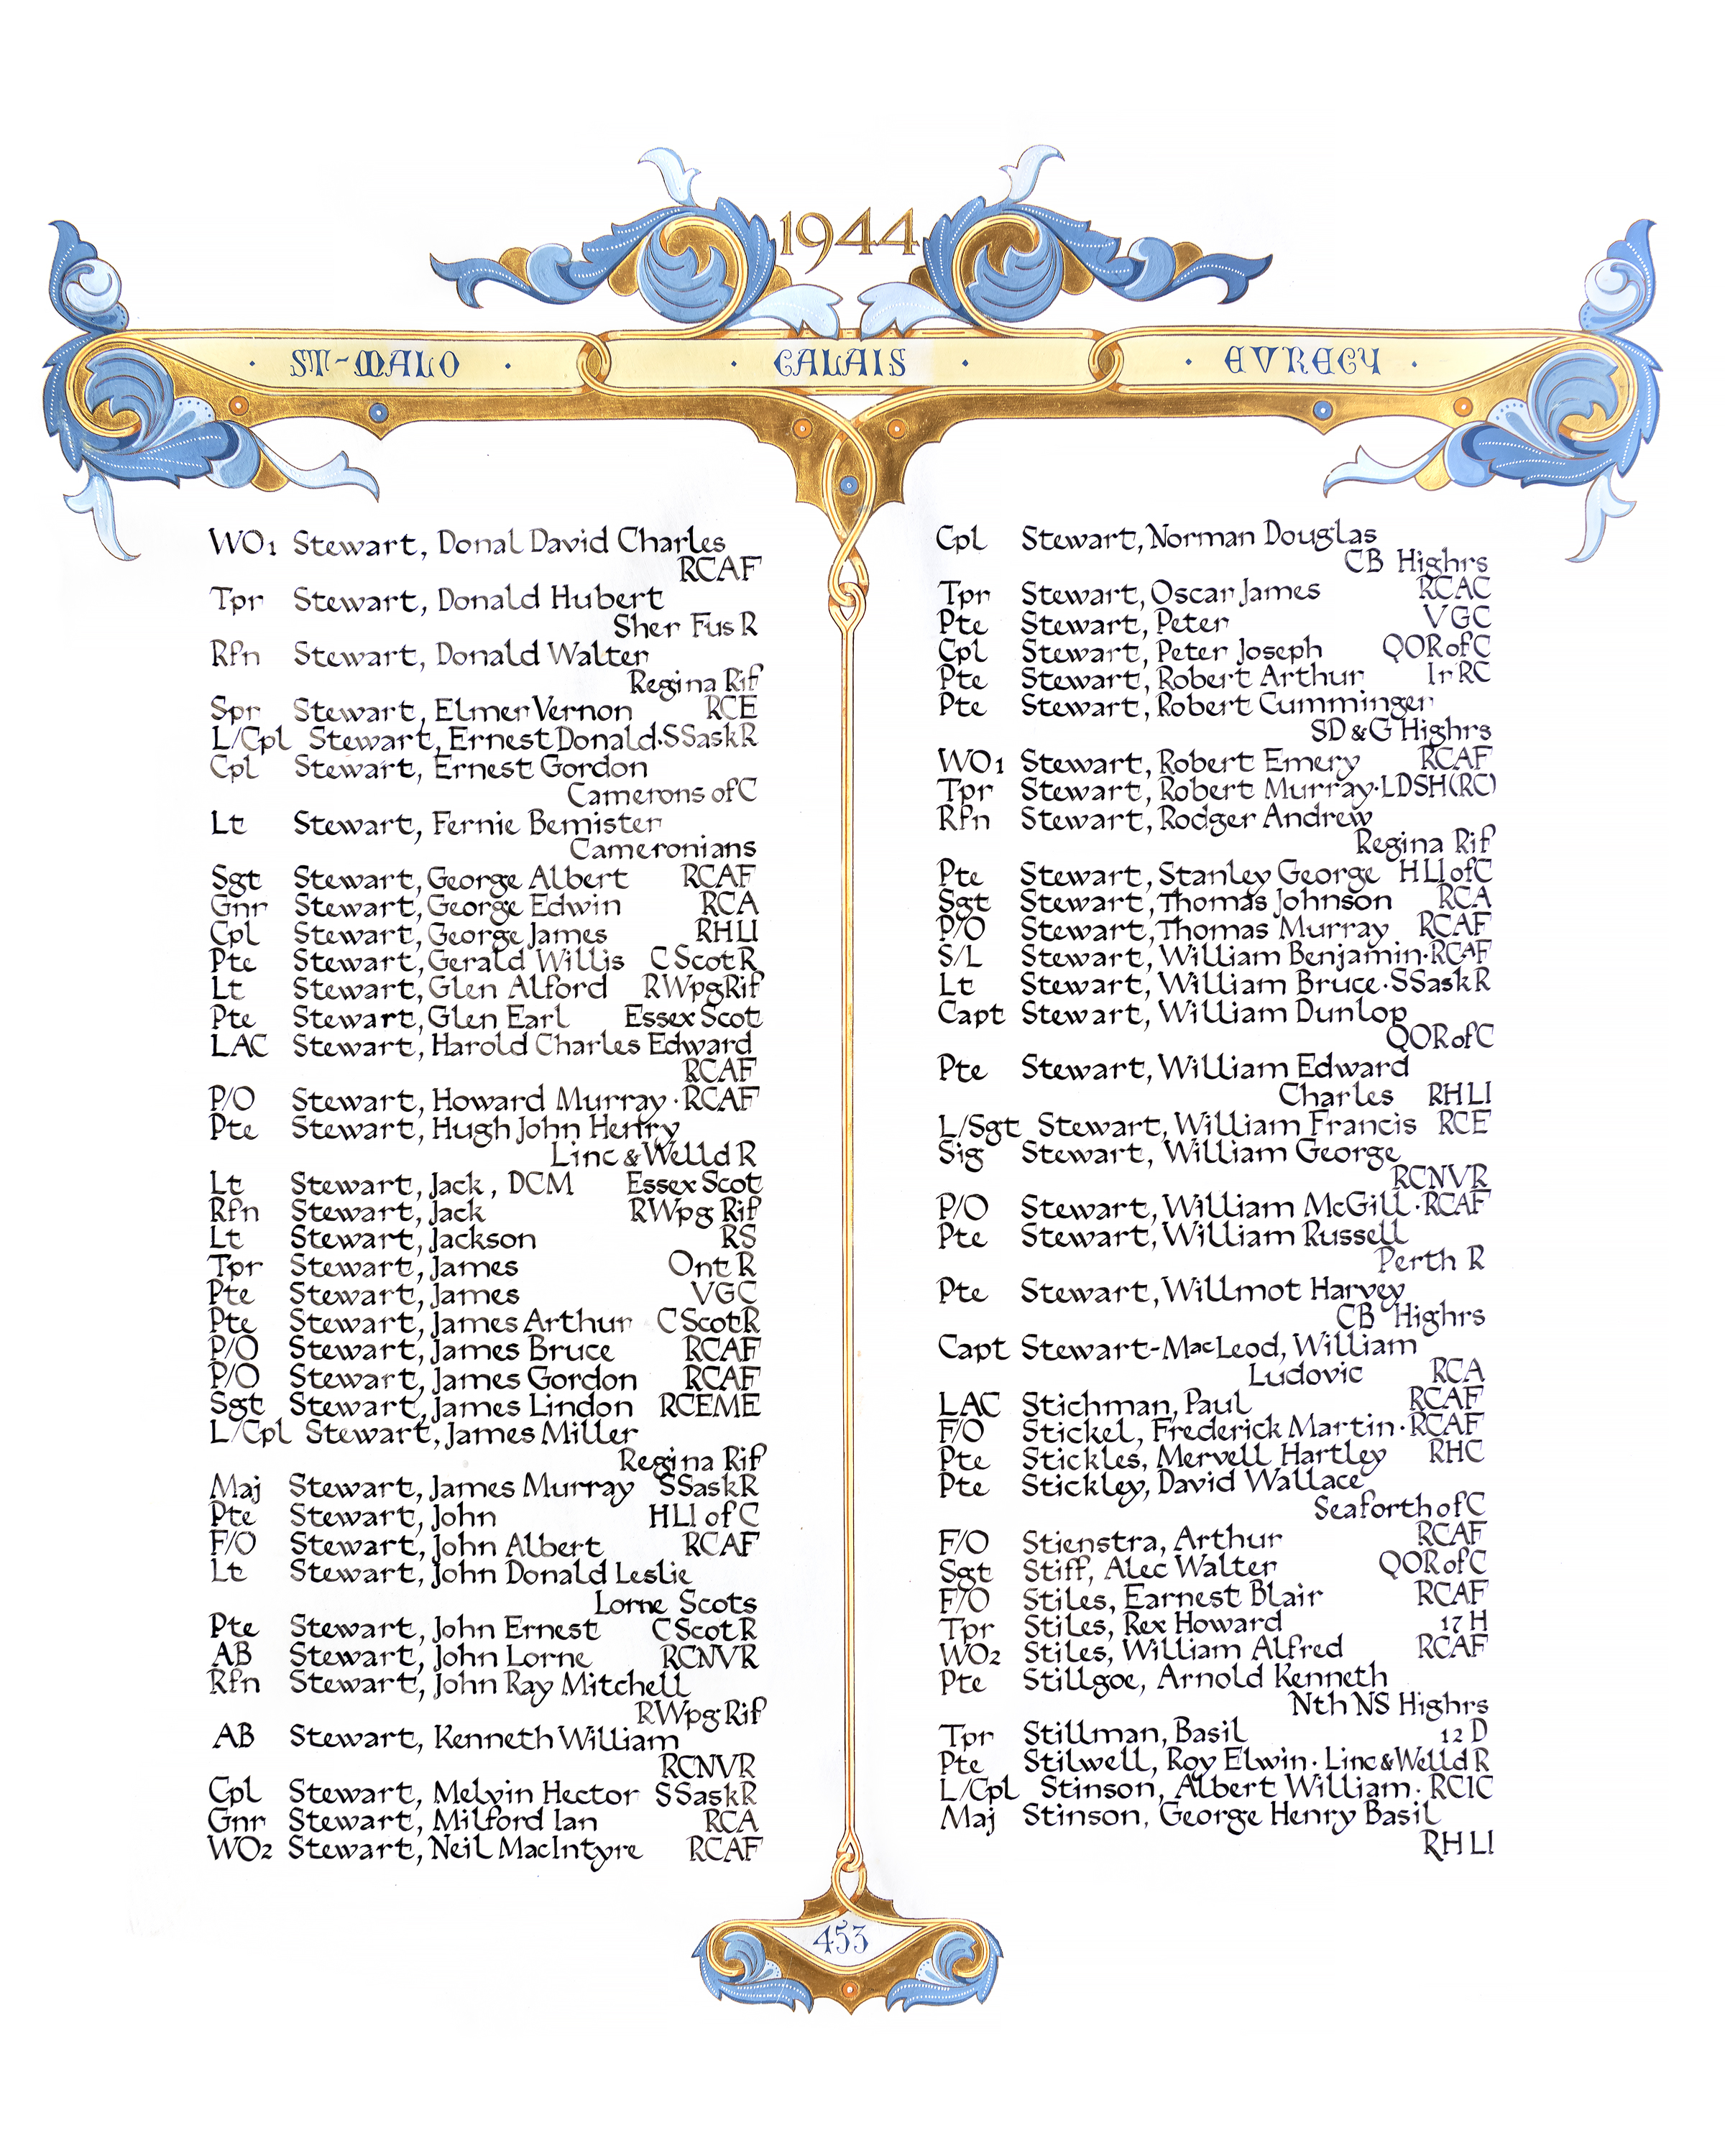 1944
· ST-MALO · · CALAIS · · EVRECY ·
WO1 Stewart, Donal David Charles
RCAF
Tpr Stewart, Donald Hubert
Sher Fus R
Rfn Stewart, Donald Walter
Regina Rif
Spr Stewart, Elmer Vernon RCE
L/Cpl Stewart, Ernest Donald·SSaskR
Cpl Stewart, Ernest Gordon
Camerons of C
Lt Stewart, Fernie Bemister
Cameronians
Sgt Stewart, George Albert RCAF
Gnr Stewart, George Edwin RCA
Cpl Stewart, George James RHLI
Pte Stewart, Gerald Willis C Scot R
Lt Stewart, Glen Alford RWpg Rif
Pte Stewart, Glen Earl Essex Scot
LAC Stewart, Harold Charles Edward
RCAF
P/O Stewart, Howard Murray · RCAF
Pte Stewart, Hugh John Henry
Linc & Welld R
Lt Stewart, Jack, DCM Essex Scot
Rfn Stewart, Jack RWpg Rif
Lt Stewart, Jackson RS
Tpr Stewart, James Ont R
Pte Stewart, James VGC
Pte Stewart, James Arthur C Scot R
P/O Stewart, James Bruce RCAF
P/O Stewart, James Gordon RCAF
Sgt Stewart, James Lindon RCEME
L/Cpl Stewart, James Miller
Regina Rif
Maj Stewart, James Murray SSaskR
Pte Stewart, John HLI of C
F/O Stewart, John Albert RCAF
Lt Stewart, John Donald Leslie
Lorne Scots
Pte Stewart, John Ernest C Scot R
AB Stewart, John Lorne RCNVR
Rfn Stewart, John Ray Mitchell
RWpg Rif
AB Stewart, Kenneth William
RCNVR
Cpl Stewart, Melvin Hector SSaskR
Gnr Stewart, Milford Ian RCA
WO2 Stewart, Neil MacIntyre RCAF
Cpl Stewart, Norman Douglas
CB Highrs
Tpr Stewart, Oscar James RCAC
Pte Stewart, Peter VGC
Cpl Stewart, Peter Joseph QOR of C
Pte Stewart, Robert Arthur Ir RC
Pte Stewart, Robert Cumminger
SD & G Highrs
WO1 Stewart, Robert Emery RCAF
Tpr Stewart, Robert Murray·LDSH(RC)
Rfn Stewart, Rodger Andrew
Regina Rif
Pte Stewart, Stanley George HLI of C
Sgt Stewart, Thomas Johnson RCA
P/O Stewart, Thomas Murray RCAF
S/L Stewart, William Benjamin·RCAF
Lt Stewart, William Bruce·SSaskR
Capt Stewart, William Dunlop
QOR of C
Pte Stewart, William Edward
Charles RHLI
L/Sgt Stewart, William Francis RCE
Sig Stewart, William George
RCNVR
P/O Stewart, William McGill·RCAF
Pte Stewart, William Russell
Perth R
Pte Stewart, Willmot Harvey
CB Highrs
Capt Stewart-MacLeod, William
Ludovic RCA
LAC Stichman, Paul RCAF
F/O Stickel, Frederick Martin·RCAF
Pte Stickles, Mervell Hartley RHC
Pte Stickley, David Wallace
Seaforth of C
F/O Stienstra, Arthur RCAF
Sgt Stiff, Alec Walter QOR of C
F/O Stiles, Earnest Blair RCAF
Tpr Stiles, Rex Howard 17 H
WO2 Stiles, William Alfred RCAF
Pte Stillgoe, Arnold Kenneth
Nth NS Highrs
Tpr Stillman, Basil 12 D
Pte Stilwell, Roy Elwin · Linc & Welld R
L/Cpl Stinson, Albert William · RCIC
Maj Stinson, George Henry Basil
RHLI
453